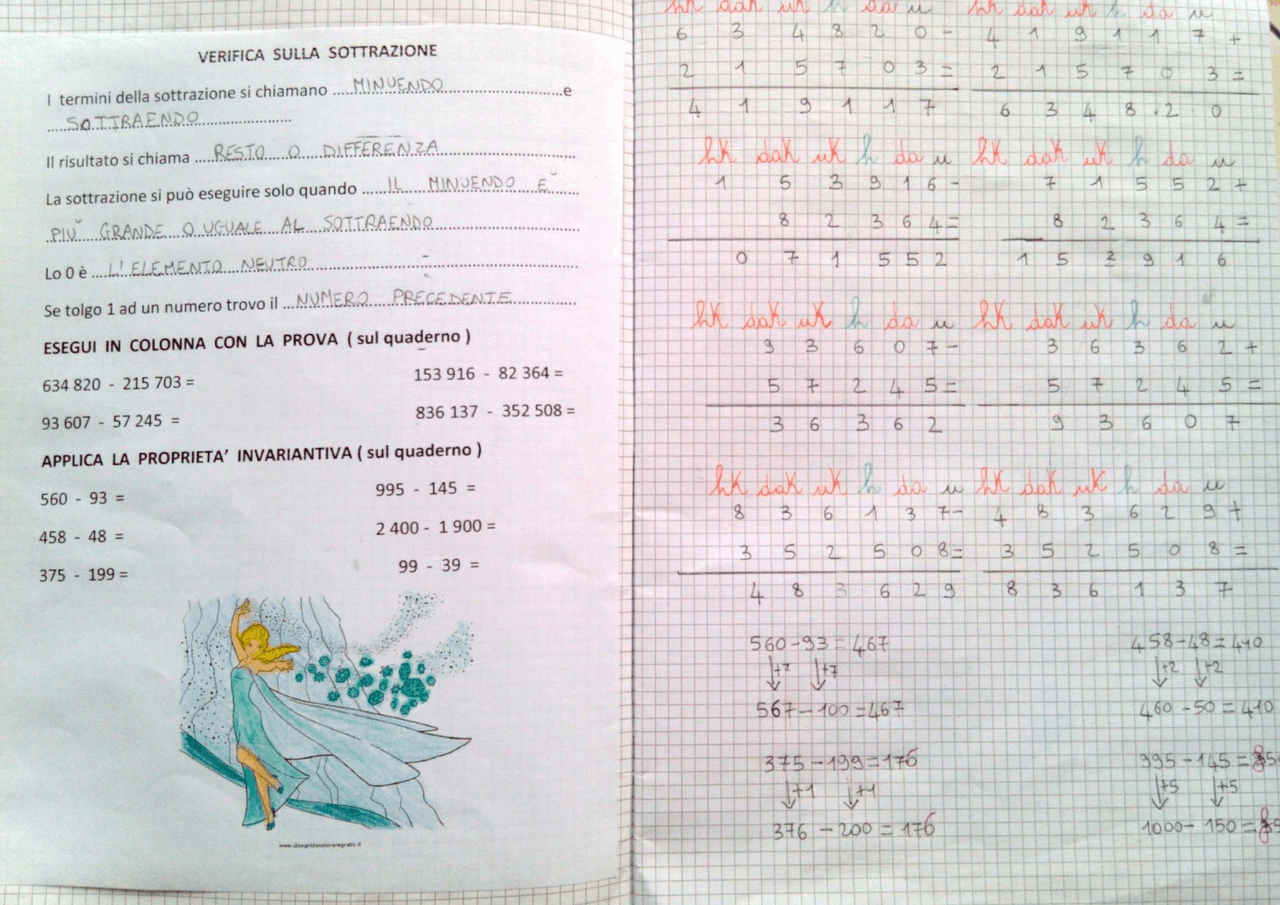 VERIFICA SULLA SOTTRAZIONE
I termini della sottrazione si chiamano ....MINUENDO....e
....SOTTRAENDO....
Il risultato si chiama ....RESTO O DIFFERENZA....
La sottrazione si può eseguire solo quando ....IL MINUENDO E'....
PIU' GRANDE O UGUALE AL SOTTRAENDO
Lo 0 è ....L'ELEMENTO NEUTRO....
Se tolgo 1 ad un numero trovo il ....NUMERO PRECEDENTE....
ESEGUI IN COLONNA CON LA PROVA ( sul quaderno )
634 820 - 215 703 = 153 916 - 82 364 =
93 607 - 57 245 = 836 137 - 352 508 =
APPLICA LA PROPRIETA' INVARIANTIVA ( sul quaderno )
560 - 93 = 995 - 145 =
458 - 48 = 2 400 - 1 900 =
375 - 199 = 99 - 39 =
www.disegnidacoloraregratis.it
hk dak uk h da u hk dak uk h da u
6 3 4 8 2 0 - 4 1 9 1 1 7 +
2 1 5 7 0 3 = 2 1 5 7 0 3 =
4 1 9 1 1 7 6 3 4 8 2 0
hk dak uk h da u hk dak uk h da u
1 5 3 9 1 6 - 7 1 5 5 2 +
8 2 3 6 4 = 8 2 3 6 4 =
0 7 1 5 5 2 1 5 3 9 1 6
hk dak uk h da u hk dak uk h da u
9 3 6 0 7 - 3 6 3 6 2 +
5 7 2 4 5 = 5 7 2 4 5 =
3 6 3 6 2 9 3 6 0 7
hk dak uk h da u hk dak uk h da u
8 3 6 1 3 7 - 4 8 3 6 2 9 +
3 5 2 5 0 8 = 3 5 2 5 0 8 =
4 8 3 6 2 9 8 3 6 1 3 7
560 - 93 = 467 458 - 48 = 410
↓+7 ↓+7 ↓+2 ↓+2
567 - 100 = 467 460 - 50 = 410
375 - 199 = 176 995 - 145 = 85
↓+1 ↓+1 ↓+5 ↓+5
376 - 200 = 176 1000 - 150 = 85